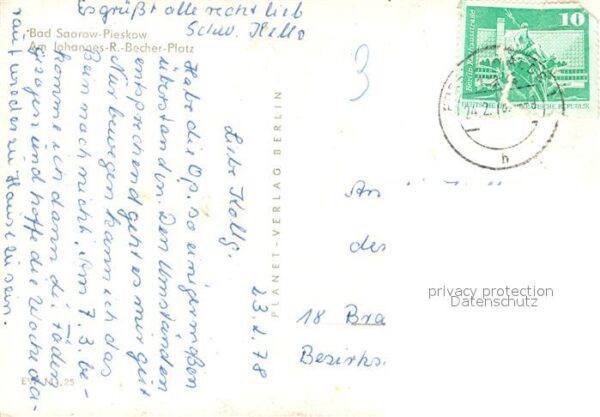 Bad Saarow-Pieskow
Am Johannes-R.-Becher-Platz
23.2.78
Liebe Kollg.
Habe die Op. so einigermaßen
überstanden. Den Umständen
entsprechend geht es mir gut
Nur bewegen kann ich das
Bein noch nicht. Am 7.3. be-
komme ich dann die Fäden
gezogen und hoffe die Woche da-
rauf wieder zu Hause zu sein.
Es grüßt alle recht lieb
Schw. Hella
PLANET-VERLAG BERLIN
3
10
Berlin, Rathausstraße
DEUTSCHE DEMOKRATISCHE REPUBLIK
24.2.78
h
An
des
18 Bra
Bezirks
privacy protection
Datenschutz
25